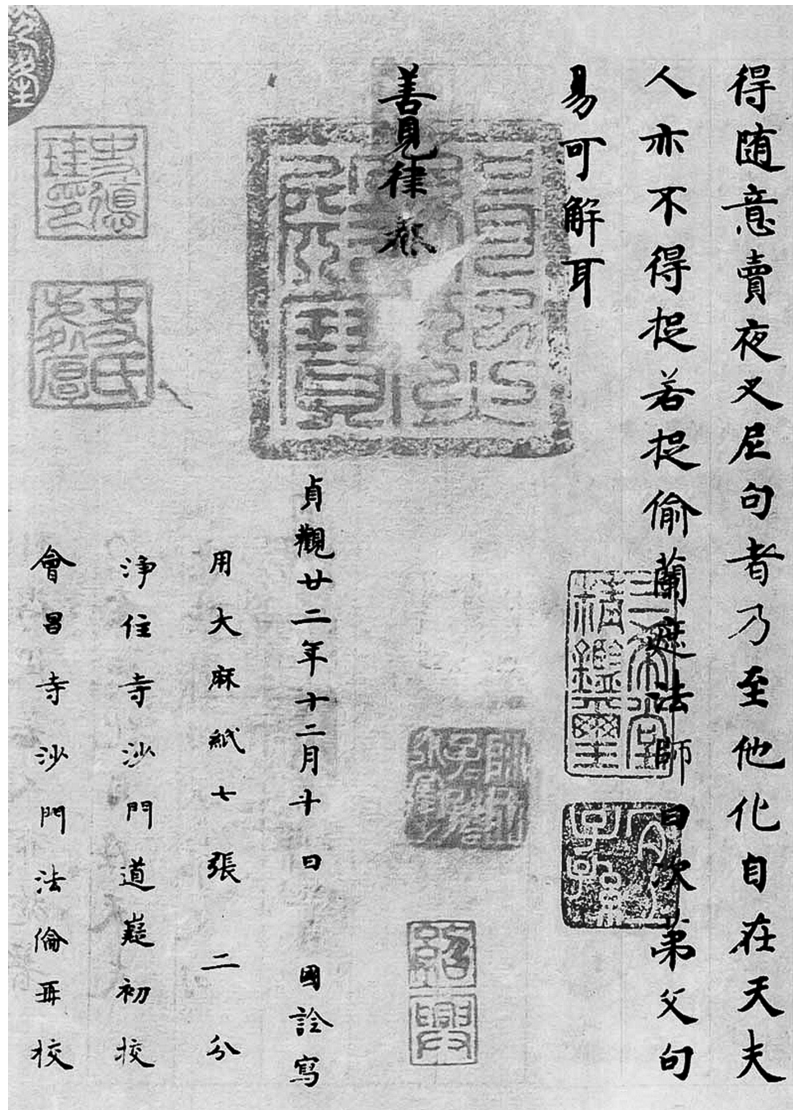 得随意賣夜叉尼句者乃至他化自在天夫
人亦不得捉若捉偷蘭遮法師曰次弟父句
易可解耳
三希堂精鑑璽
宜子孫
善見律卷
紹興
貞觀廿二年十二月十日 國詮寫
用大麻紙七張 二分
淨住寺沙門道嶷初校
會昌寺沙門法倫再校